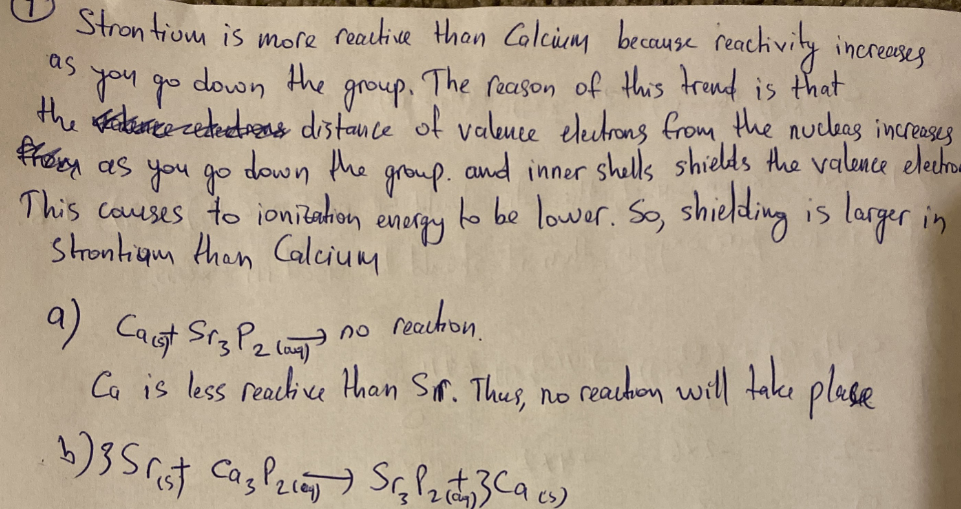 1 Strontium is more reactive than Calcium because reactivity increases
as you go down the group. The reason of this trend is that
the distance of valence electrons from the nucleas increases
as you go down the group. and inner shells shields the valence electro
This causes to ionization energy to be lower. So, shielding is larger in
Strontium than Calcium
a) Ca(s) + Sr3P2(aq) → no reaction.
Ca is less reactive than Sr. Thus, no reaction will take place
b) 3Sr(s) + Ca3P2(aq) → Sr3P2(aq) + 3Ca(s)